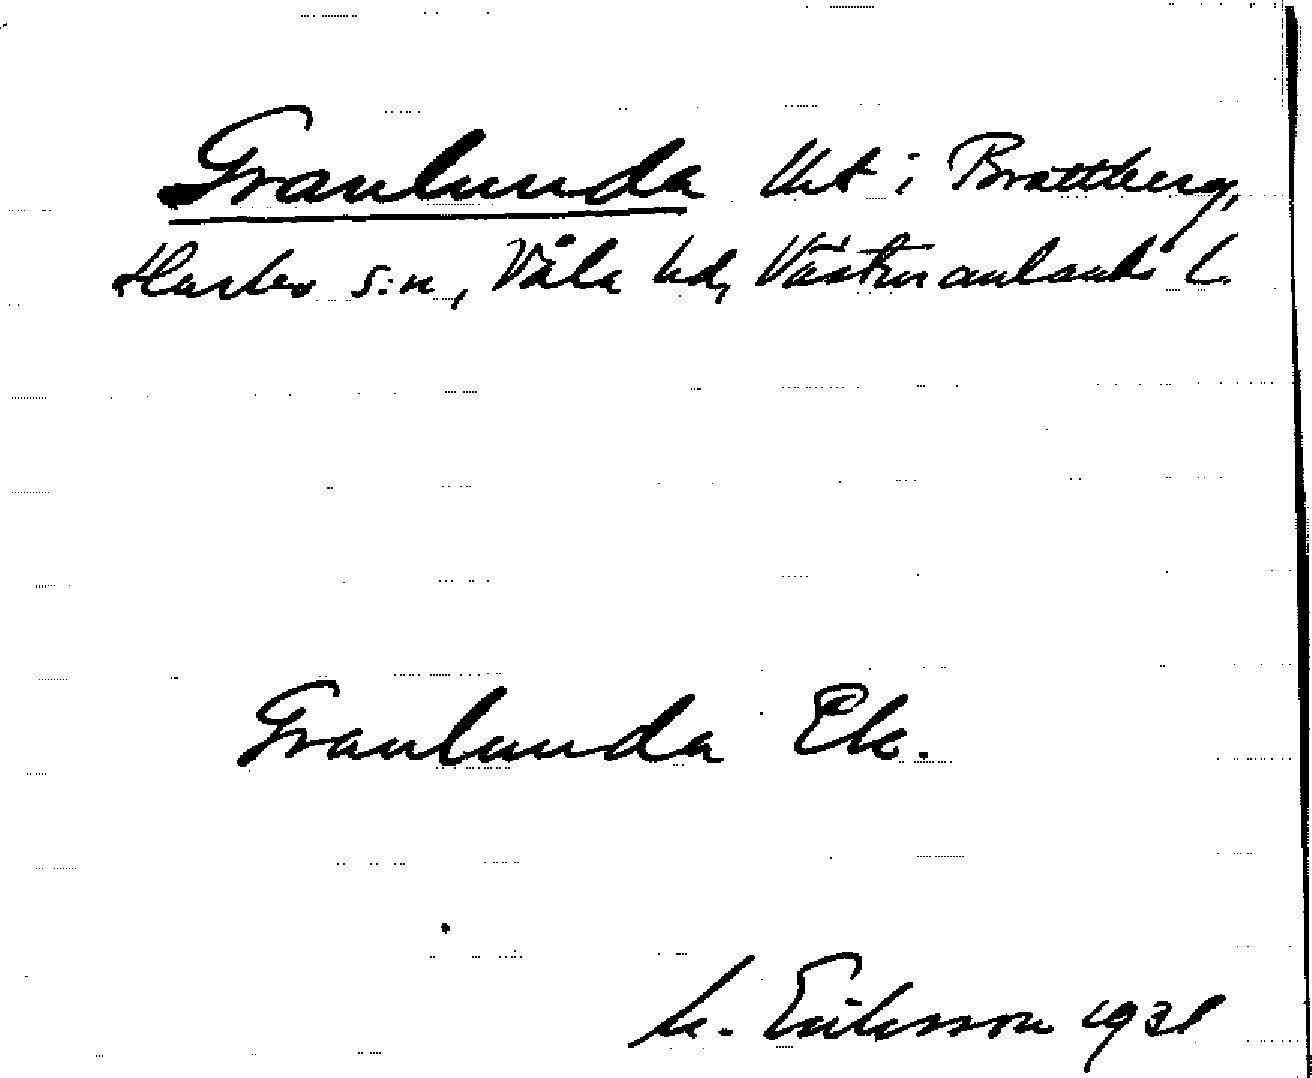 Granlunda lht i Brattberg,
Harbo s:n, Våla hd, Västmanlands l.
Granlunda Ek.
M. Eriksson 1931